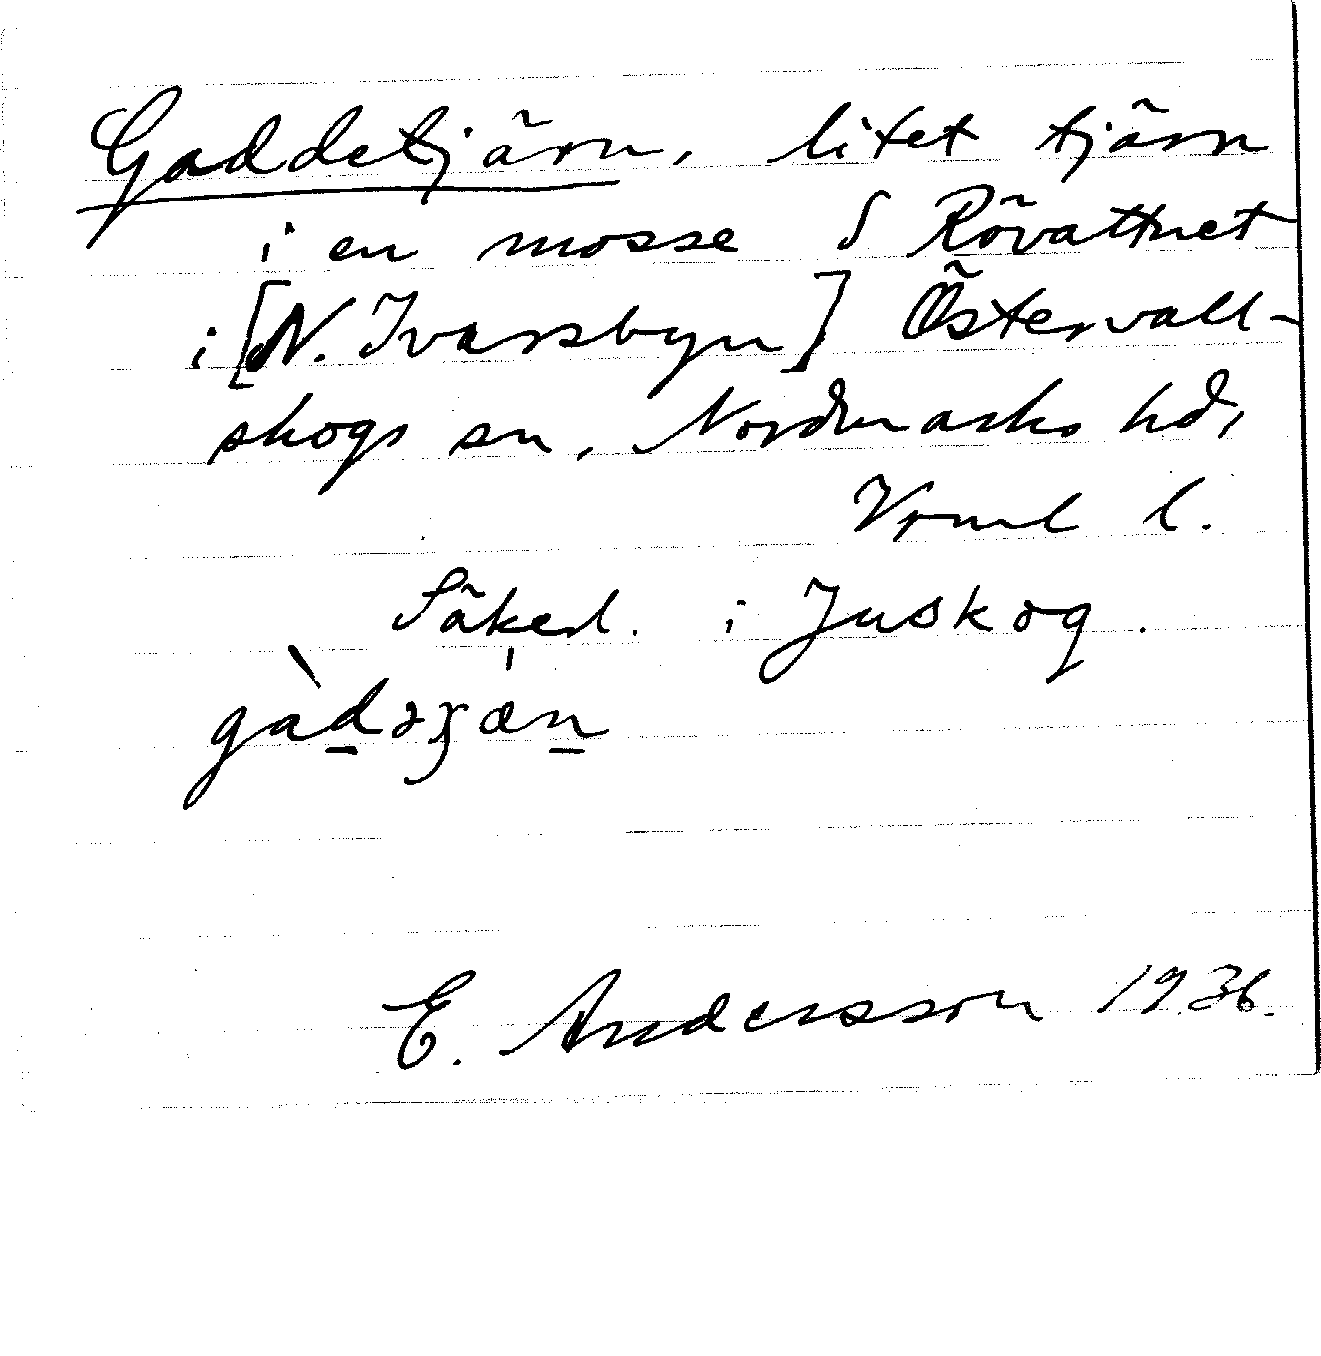 Gaddetjärn, litet tjärn
i en mosse S Rövattnet
i [N. Ivarsbyn] Östervall-
skogs sn, Nordmarks hd,
Vrml l.
Säked. i Juskog.
E. Andersson 1936.